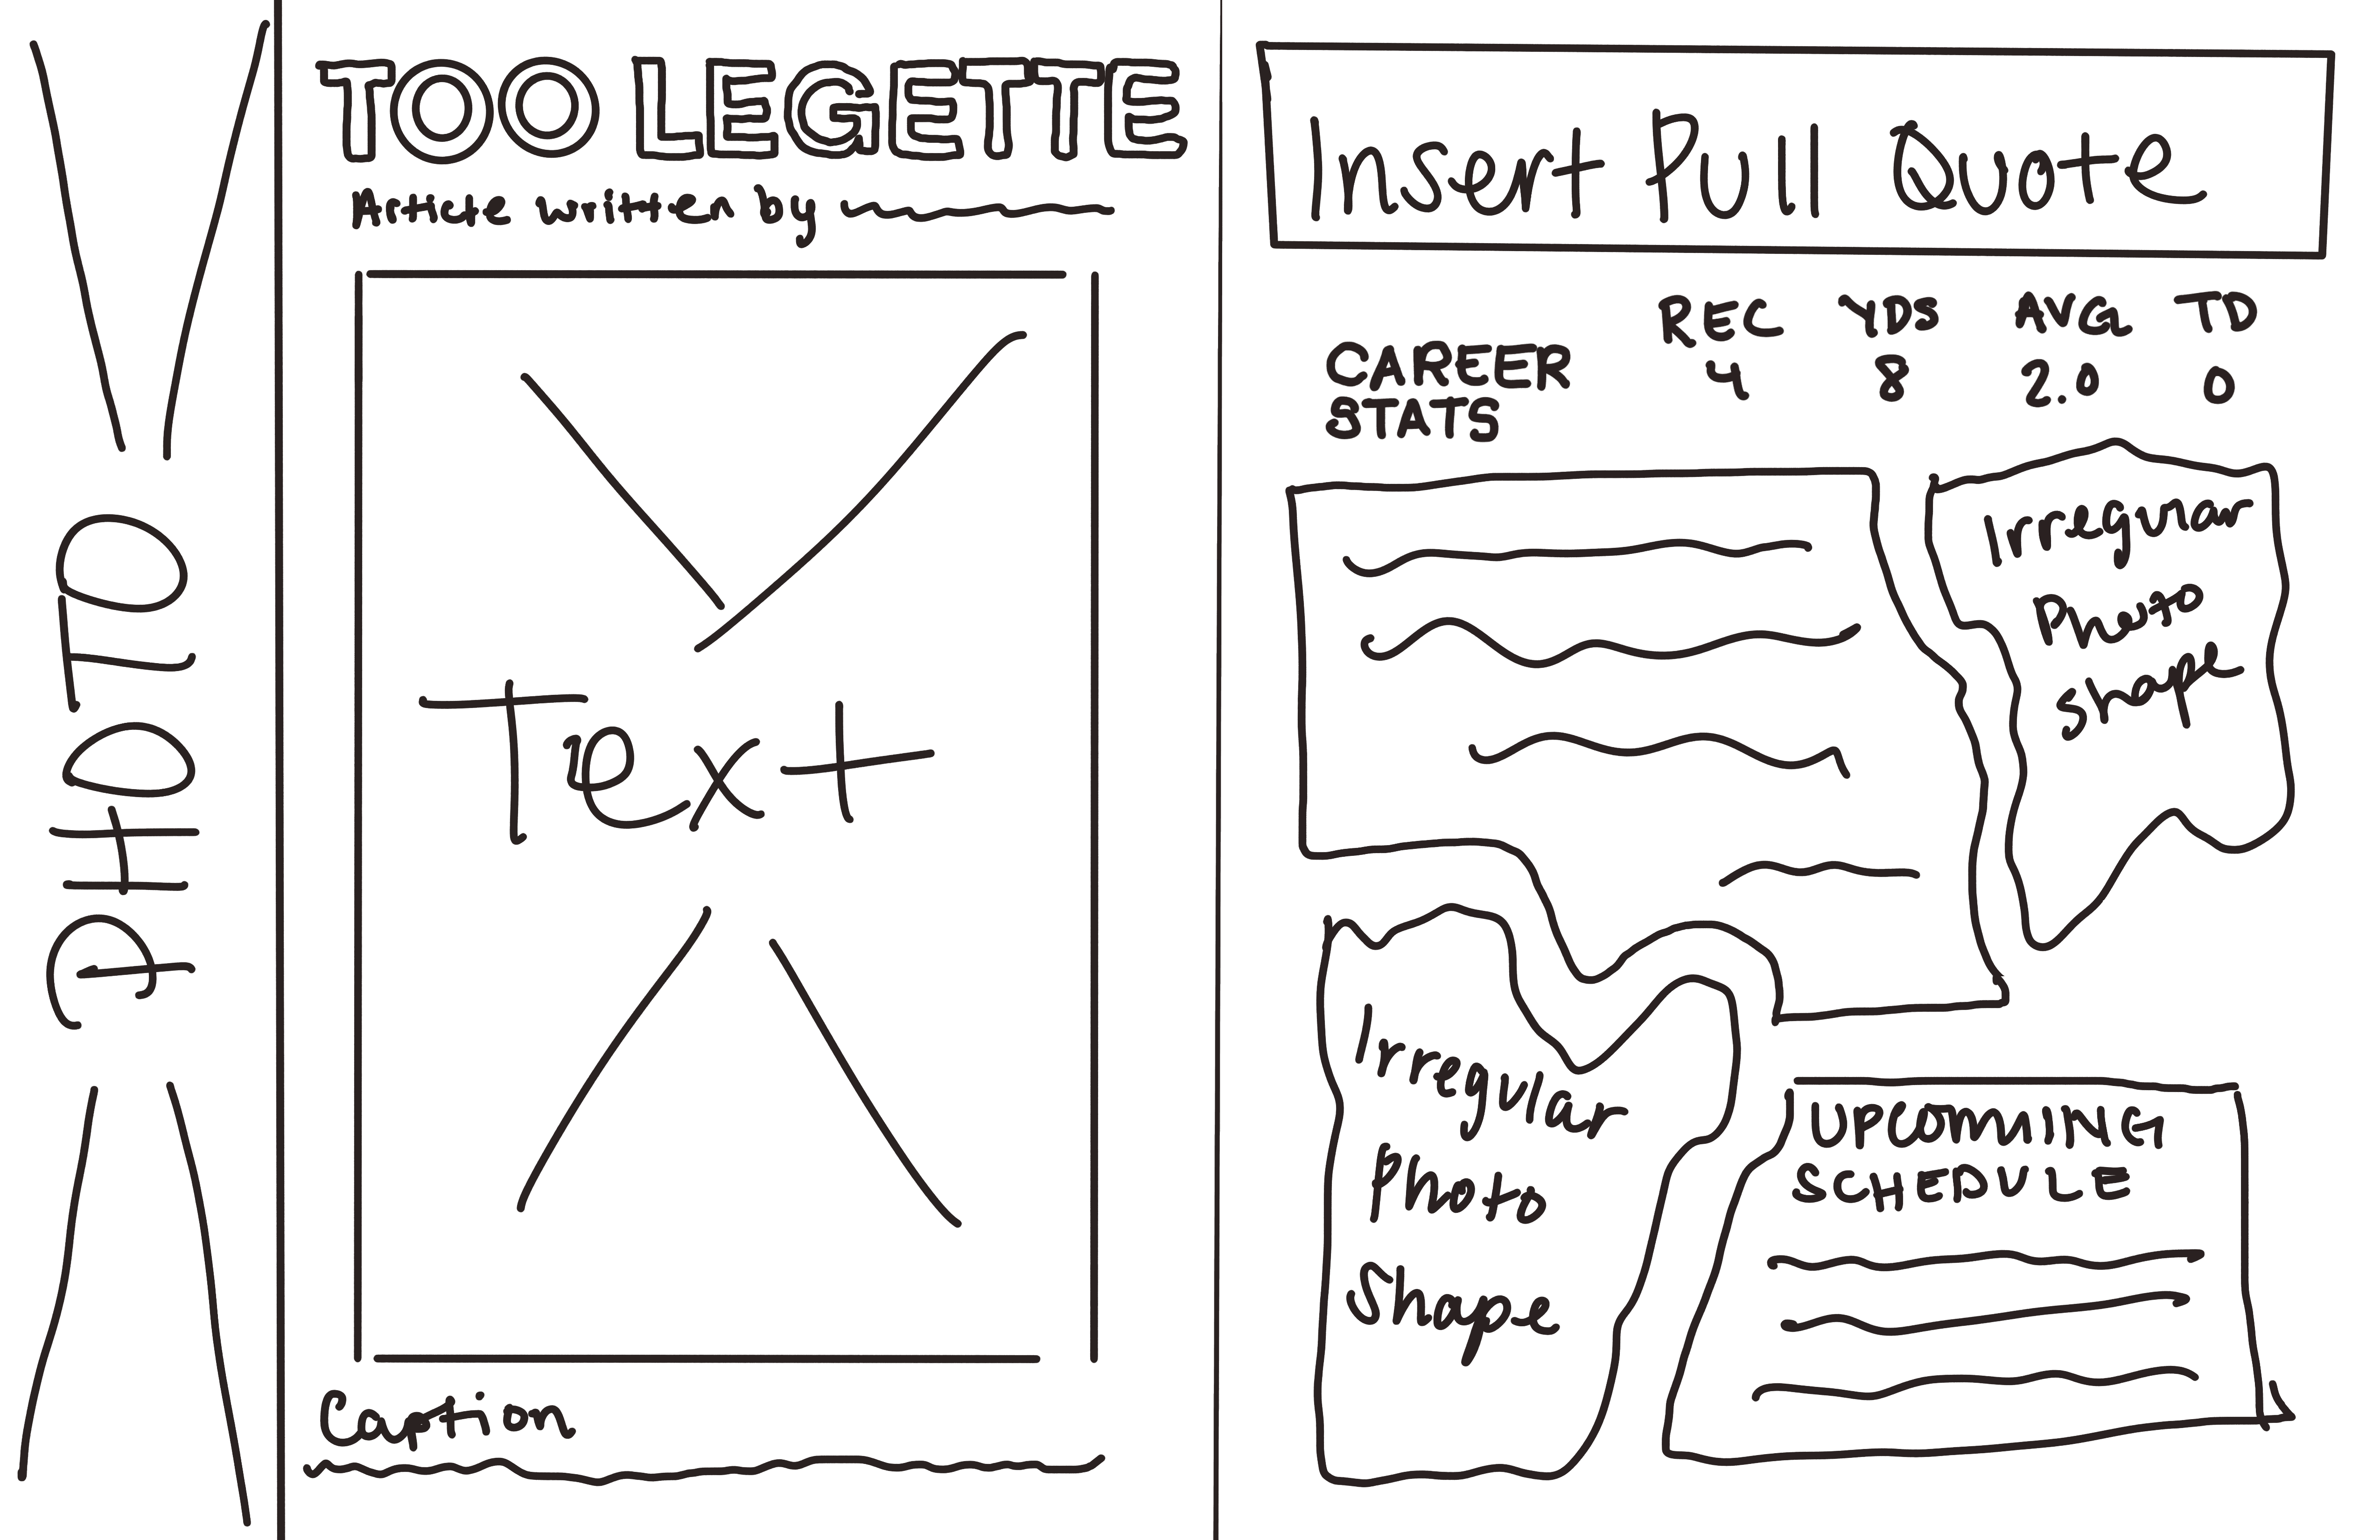 PHOTO
TOO LEGETTE
Article written by
Text
Caption
Insert Pull Quote
REC YDS AVG TD
CAREER STATS 4 8 2.0 0
Irregular
Photo
Shape
Irregular
Photo
Shape
UPCOMING
SCHEDULE